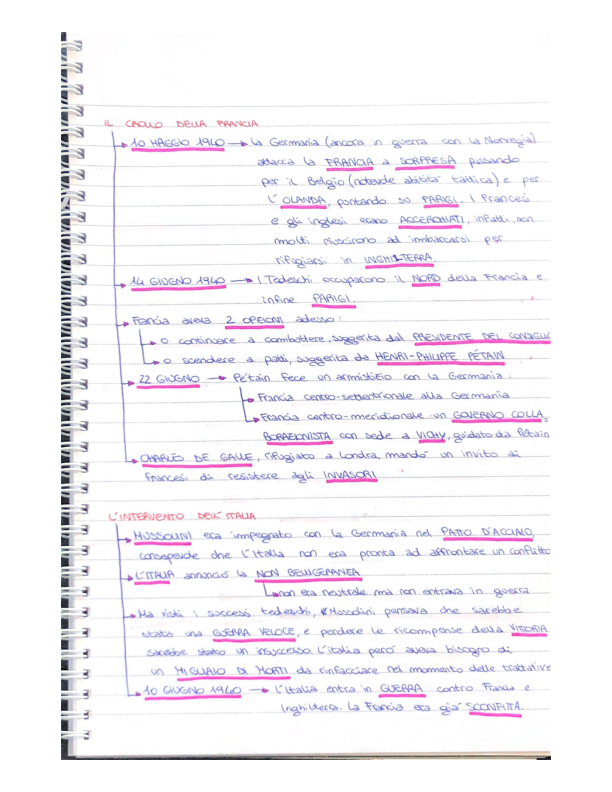 IL CROLLO DELLA FRANCIA
10 MAGGIO 1940 → La Germania (ancora in guerra con la Norvegia)
attacca la FRANCIA a SORPRESA passando
per il Belgio (notevole abilità tattica) e per
l'OLANDA, puntando su PARIGI. I francesi
e gli inglesi erano ACCERCHIATI, infatti, non
molti riuscirono ad imbarcarsi per
rifugiarsi in INGHILTERRA.
14 GIUGNO 1940 → I Tedeschi occuparono il NORD della Francia e
infine PARIGI.
Francia aveva 2 OPZIONI adesso:
o continuare a combattere, suggerita dal PRESIDENTE DEL CONSIGLIO
o scendere a patti, suggerita da HENRI-PHILIPPE PÉTAIN
22 GIUGNO → Pétain fece un armistizio con la Germania:
Francia centro-settentrionale alla Germania
Francia centro-meridionale un GOVERNO COLLA
BORAZIONISTA con sede a VICHY, guidato da Pétain
CHARLES DE GAULLE, rifugiato a Londra, mandò un invito ai
francesi di resistere agli INVASORI
L'INTERVENTO DELL'ITALIA
MUSSOLINI era impegnato con la Germania nel PATTO D'ACCIAIO,
consapevole che l'Italia non era pronta ad affrontare un conflitto
L'ITALIA annunciò la NON BELLIGERANZA
non era neutrale ma non entrava in guerra
Ma visti i successi tedeschi, Mussolini pensava che sarebbe
stata una GUERRA VELOCE, e perdere le ricompense della VITTORIA
sarebbe stato un insuccesso. L'italia però aveva bisogno di
un MIGLIAIO DI MORTI da rinfacciare nel momento delle trattative
10 GIUGNO 1940 → L'Italia entra in GUERRA contro Francia e
Inghilterra. La Francia era già SCONFITTA.